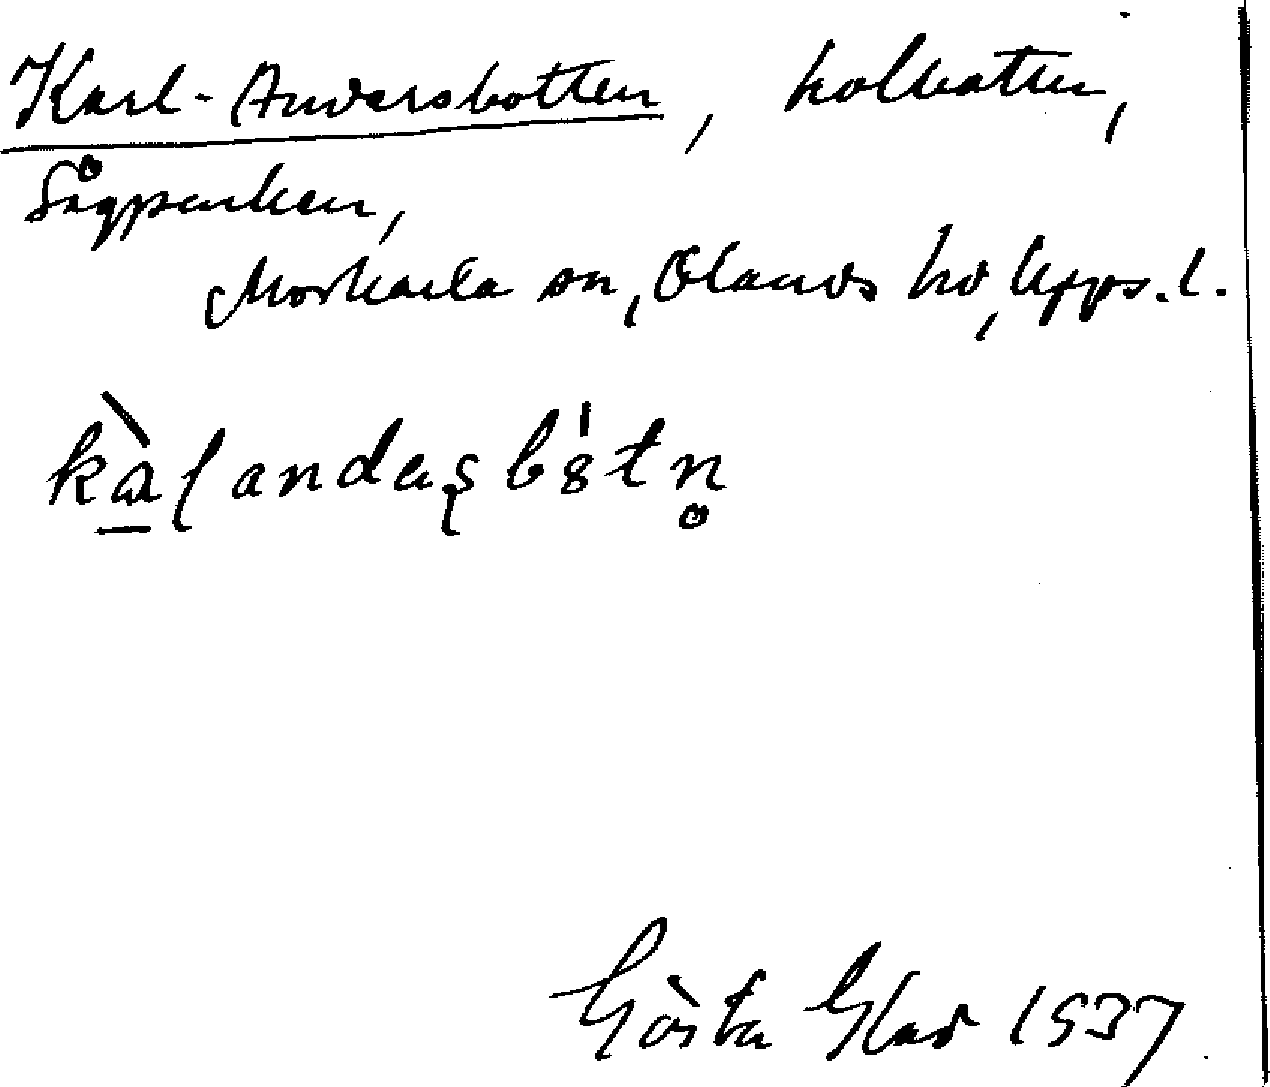 Karl-Andersbotten, kolbotten,
Sågparken,
Morkarla sn, Olands hd, Upps. l.
kàlandasbo̍tn̥
Gösta Glad 1937